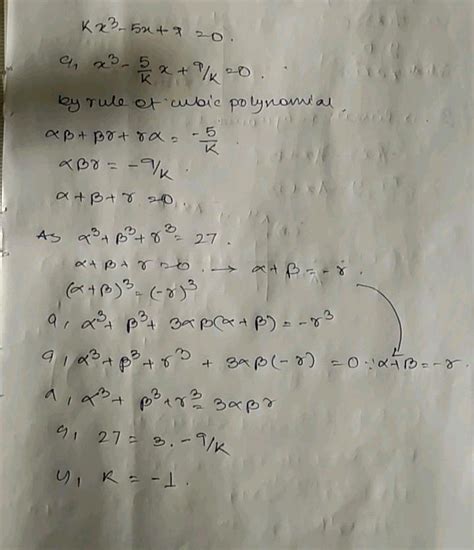 Kx³-5x+9=0.
a, x³-5/K x+9/K=0.
by rule of cubic polynomial.
αβ+βr+rα=-5/K
αβr=-9/K.
α+β+r=0.
As α³+β³+r³=27.
α+β+r=0 → α+β=-r.
(α+β)³=(-r)³
a, α³+β³+3αβ(α+β)=-r³
a, α³+β³+r³+3αβ(-r)=0 ∵ α+β=-r.
a, α³+β³+r³=3αβr
a, 27=3.-9/K
a, K=-1.